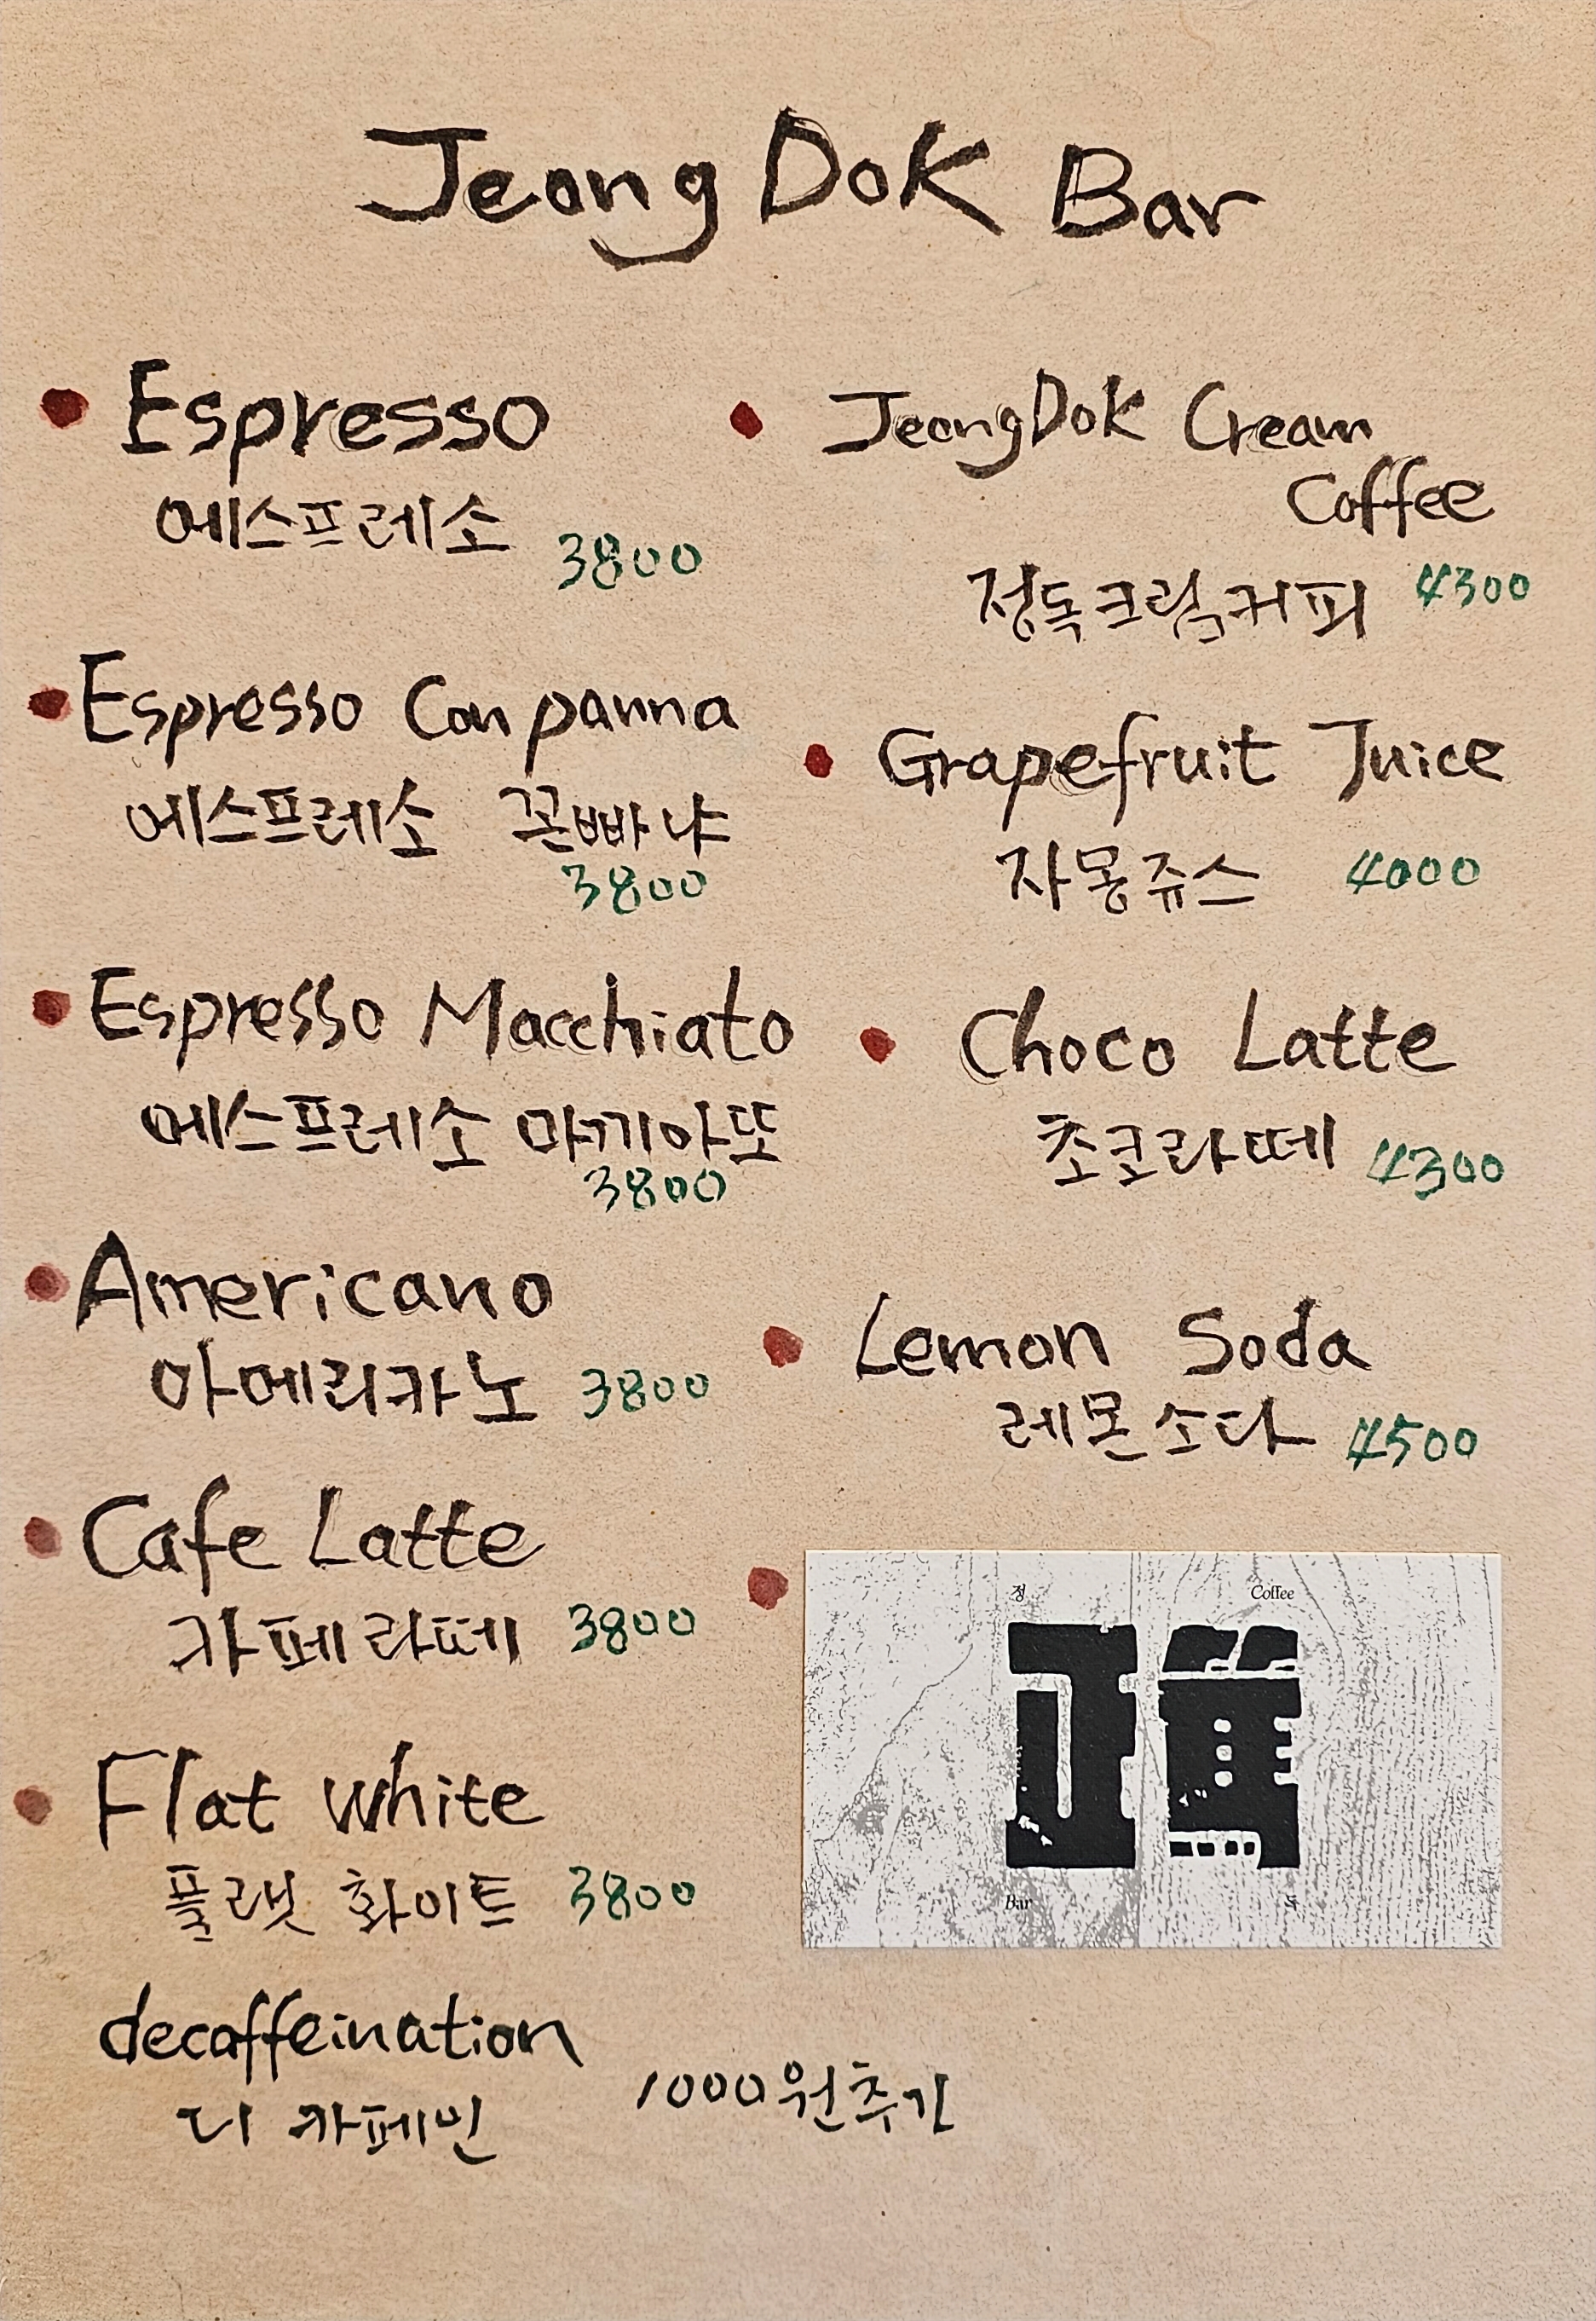 Jeong Dok Bar
Espresso
에스프레소 3800
Espresso Con panna
에스프레소 꼰빠냐
3800
Espresso Macchiato
에스프레소 마끼아또
3800
Americano
아메리카노 3800
Cafe Latte
카페라떼 3800
Flat white
플랫 화이트 3800
decaffeination
디 카페인 1000원추가
JeongDok Cream
Coffee
정독크림커피 4300
Grapefruit Juice
자몽쥬스 4000
Choco Latte
초코라떼 4300
Lemon Soda
레몬소다 4500
정 Coffee
Bar 독